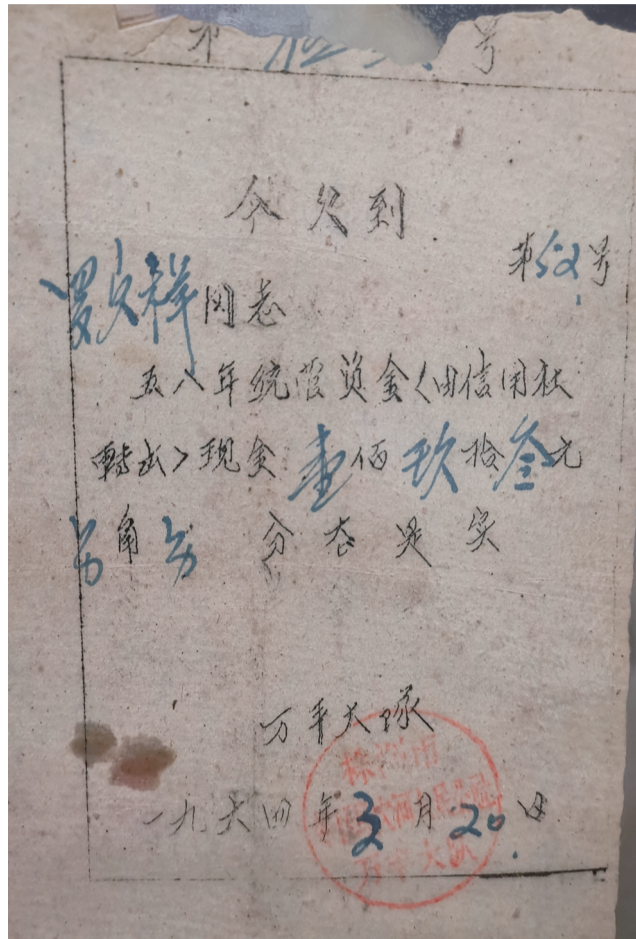 第 号
今欠到
第52号
罗文祥同志
五八年统筹资金(由信用社
转出)现金壹佰玖拾叁元
另角另 分 态是实
万丰大队
一九六四年3月20日
万丰大队